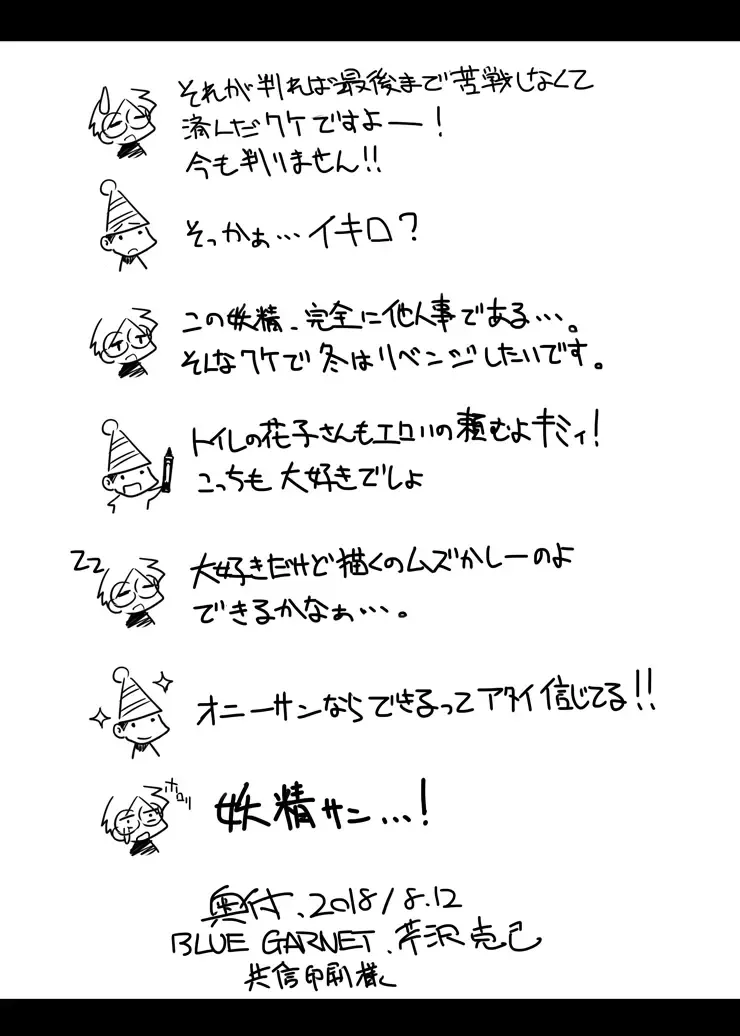 それが判れば最後まで苦戦しなくて
済んだワケですよー！
今も判りません!!
そっかぁ…イキロ？
この妖精、完全に他人事である…。
そんなワケで冬はリベンジしたいです。
トイレの花子さんもエロいの頼むよキミィ！
こっちも大好きでしょ
ZZ
大好きだけど描くのムズかしーのよ
できるかなぁ…。
オニーサンならできるってアタイ信じてる!!
ホロリ
妖精サン…！
奥付、2018/8.12
BLUE GARNET、芹沢克己
共信印刷様